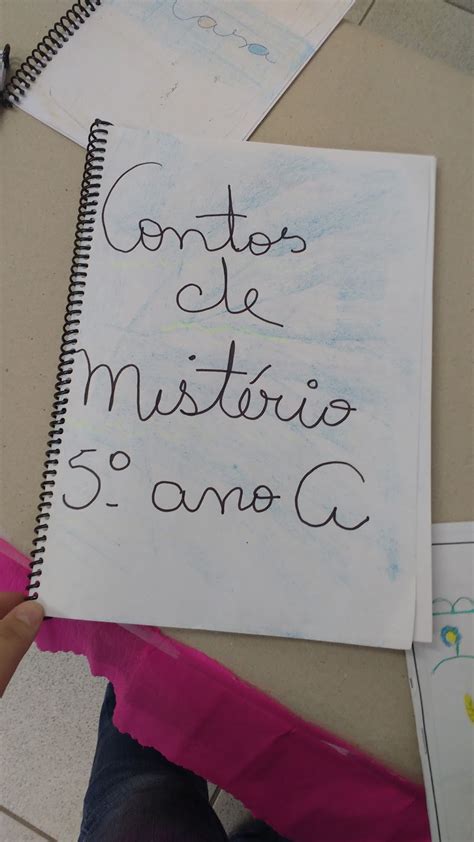 Casa
Contos
de
Mistério
5º ano A